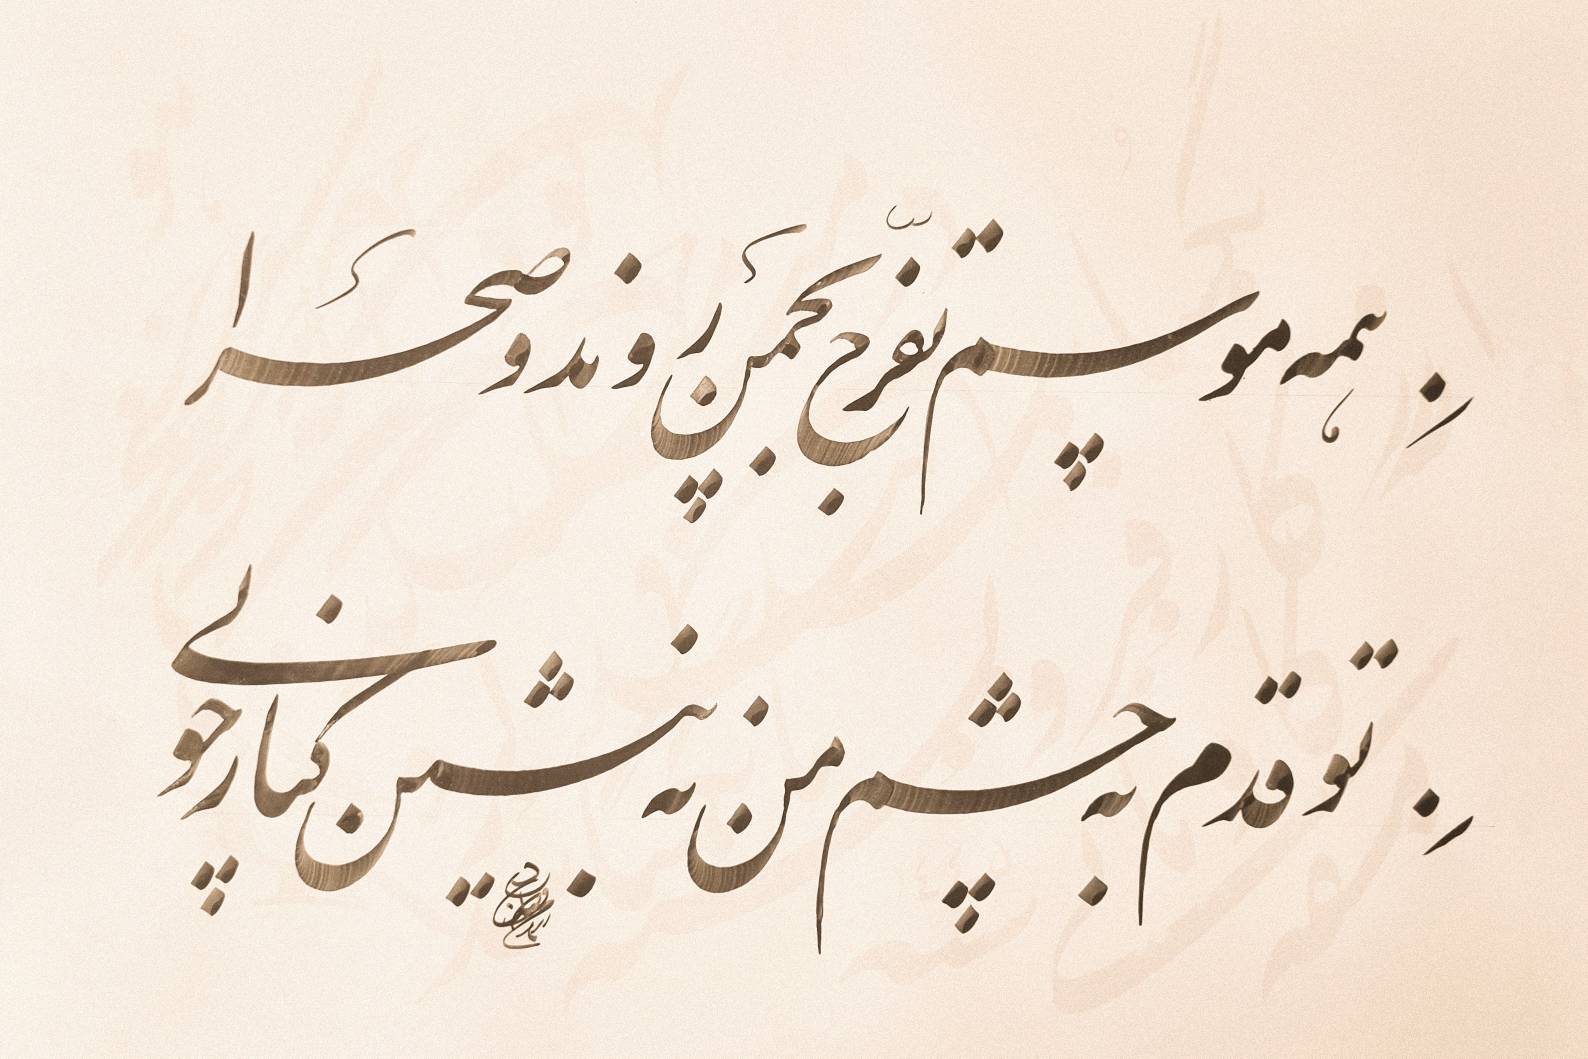 همه موسم تفرّج بچمن روند و صحرا
تو قدم به چشم من نه بنشین کنار جوئی